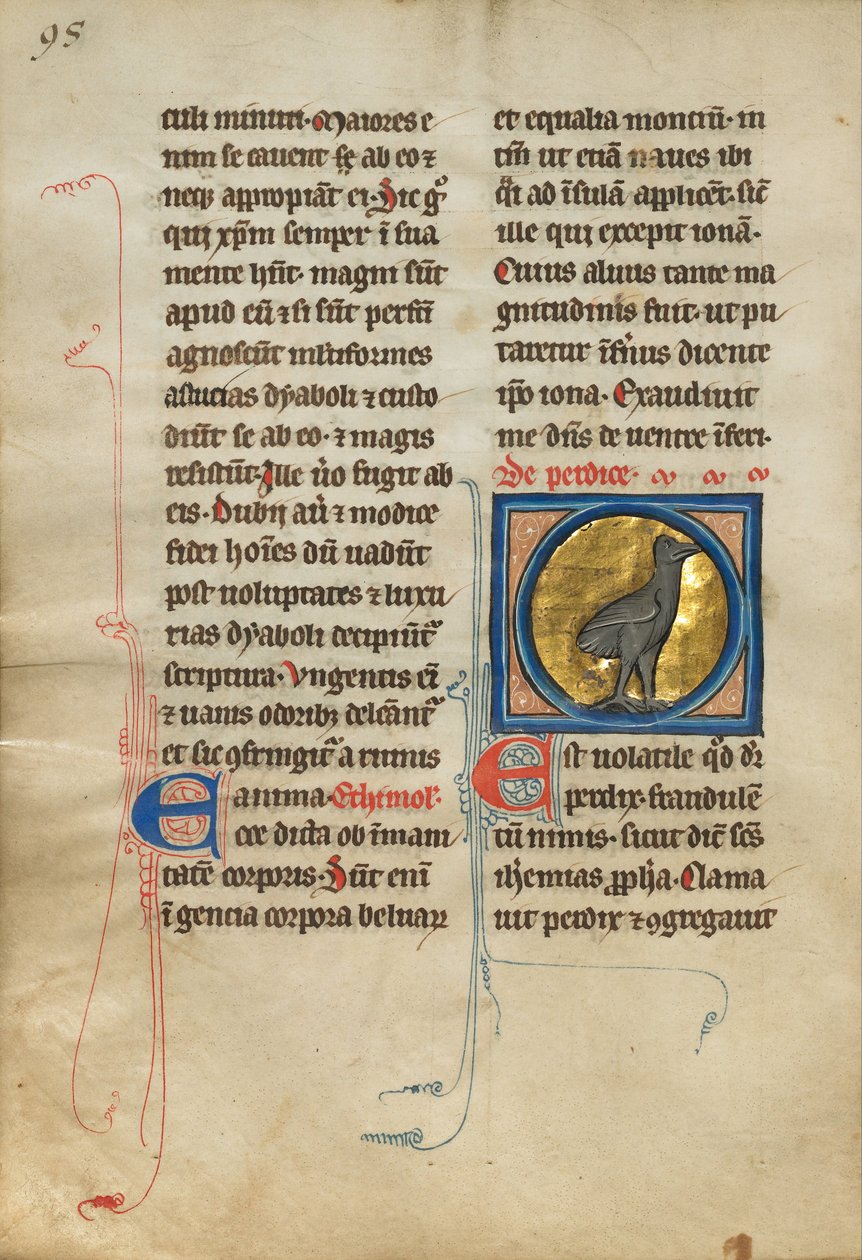 95
culi minuti. Maiores e
nim se cauent se ab eo ⁊
neq; appropiāt ei. Hic gͦ
qui xp̄m semper ī sua
mente hn̄t. magni sūt
apud eū ⁊ si sūt perfcī
agnoscūt ml̄tiformes
astucias dyaboli ⁊ custo
diūt se ab eo. ⁊ magis
resistūt. Ille ůo fugit ab
eis. Dubij aūt ⁊ modice
fidei hoīes dū uadūt
post uoluptates ⁊ luxu
rias dyaboli decipiūt᷑
scriptura. Vngentis eī
⁊ uariis odorib; delcānt᷑
et sic ꝯfringit᷑ a ruinis
anima. Ethimol'.
Cete dicta ob īmani
tatē corporis. Sūt enī
īgencia corpora beluaꝝ
et equalia monciū. in
tm̄ ut etiā naues ibi
q̄i ad īsulā applicēt. sic̄
ille qui excepit ionā.
Cuius aluus tante ma
gnitudinis fuit. ut pu
taretur īfnus dicente
ip̄o iona. Exaudiuit
me dn̄s de uentre īferi.
De perdice.
Est uolatile qd̄ dr̄
perdix. fraudulē
tū nimis. sicut dic̄ scs̄
ih̄emias ꝓph̄a. Clama
uit perdix ⁊ ꝯgregauit